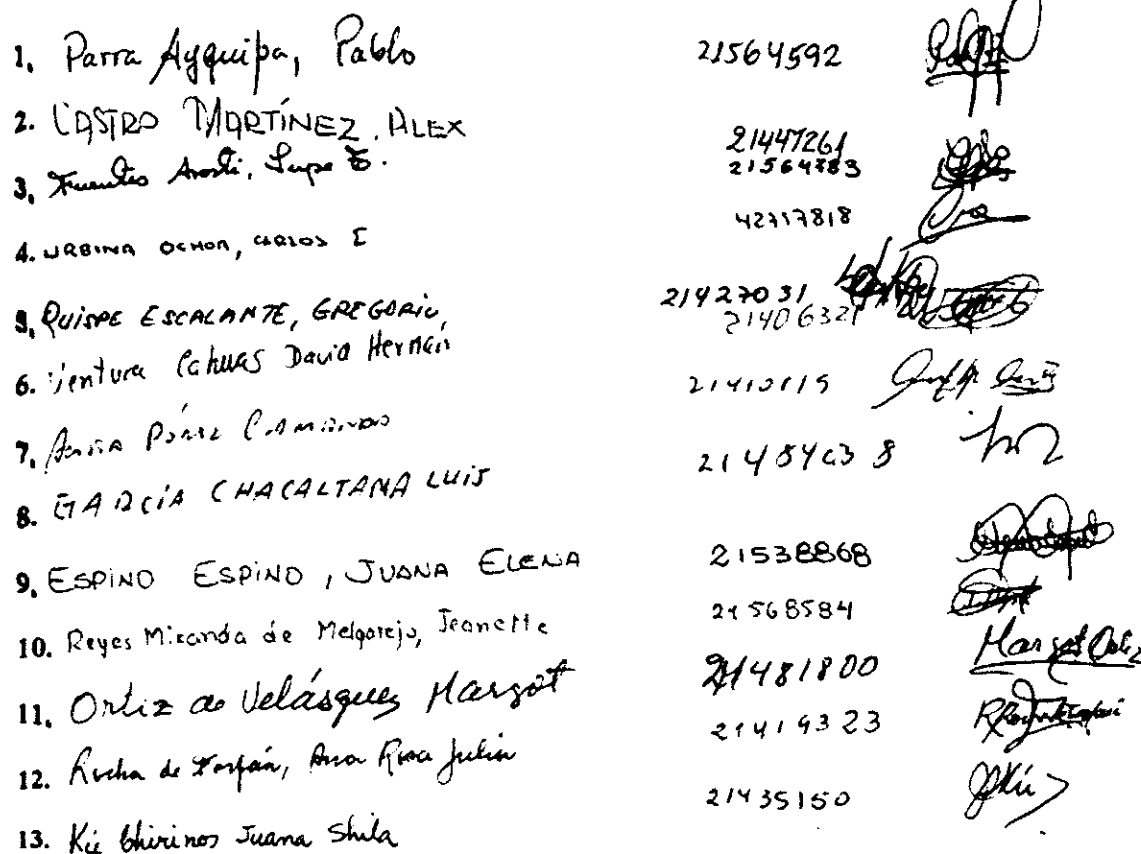 1. Parra Ayquipa, Pablo 21564592
2. CASTRO MARTÍNEZ, ALEX 21447261
3. Fuentes, Lupe E. 21564783
4. URBINA OCHOA, CARLOS I 42717818
5. QUISPE ESCALANTE, GREGORIO, 21427031
6. Ventura Cahuas David Hernán 21406321
7. 21410119
8. GARCÍA CHACALTANA LUIS 21484038
9. ESPINO ESPINO, JUANA ELENA 21538868
10. Reyes Miranda de Melgarejo, Jeanette 21568584
11. Ortiz de Velásquez Margot 21481800 Margot Ortiz
12. Rocha de Farfán, Ana Rosa Julia 21419323
13. Kú Chirinos Juana Shila 21435150